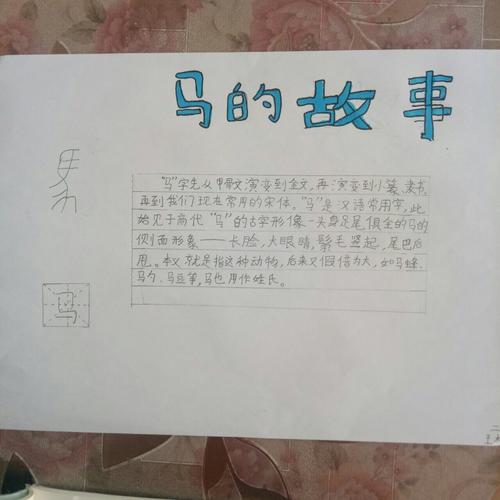 马的故事
"马"字先从甲骨文演变到金文,再演变到小篆、隶书,
再到我们现在常用的宋体。"马"是汉语常用字,此
始见于商代"马"的古字形像一头身足尾俱全的马的
侧面形象——长脸,大眼睛,鬃毛竖起,尾巴后
甩。本义就是指这种动物,后来又假借为大,如马蜂、
马勺、马豆等,马也用作姓氏。
马
二
王